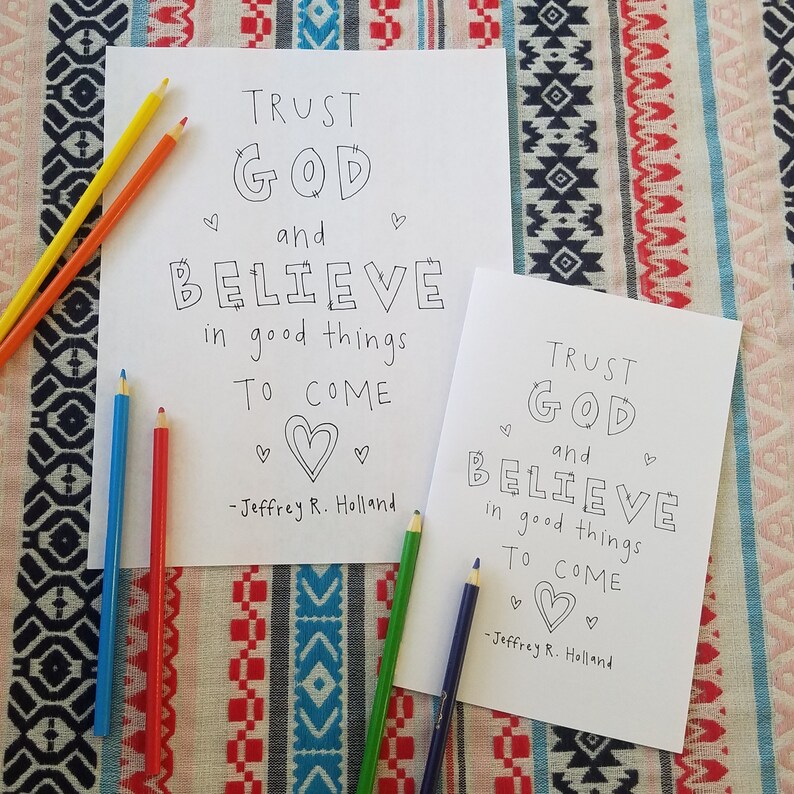 TRUST
GOD
and
BELIEVE
in good things
TO COME
-Jeffrey R. Holland
TRUST
GOD
and
BELIEVE
in good things
TO COME
-Jeffrey R. Holland